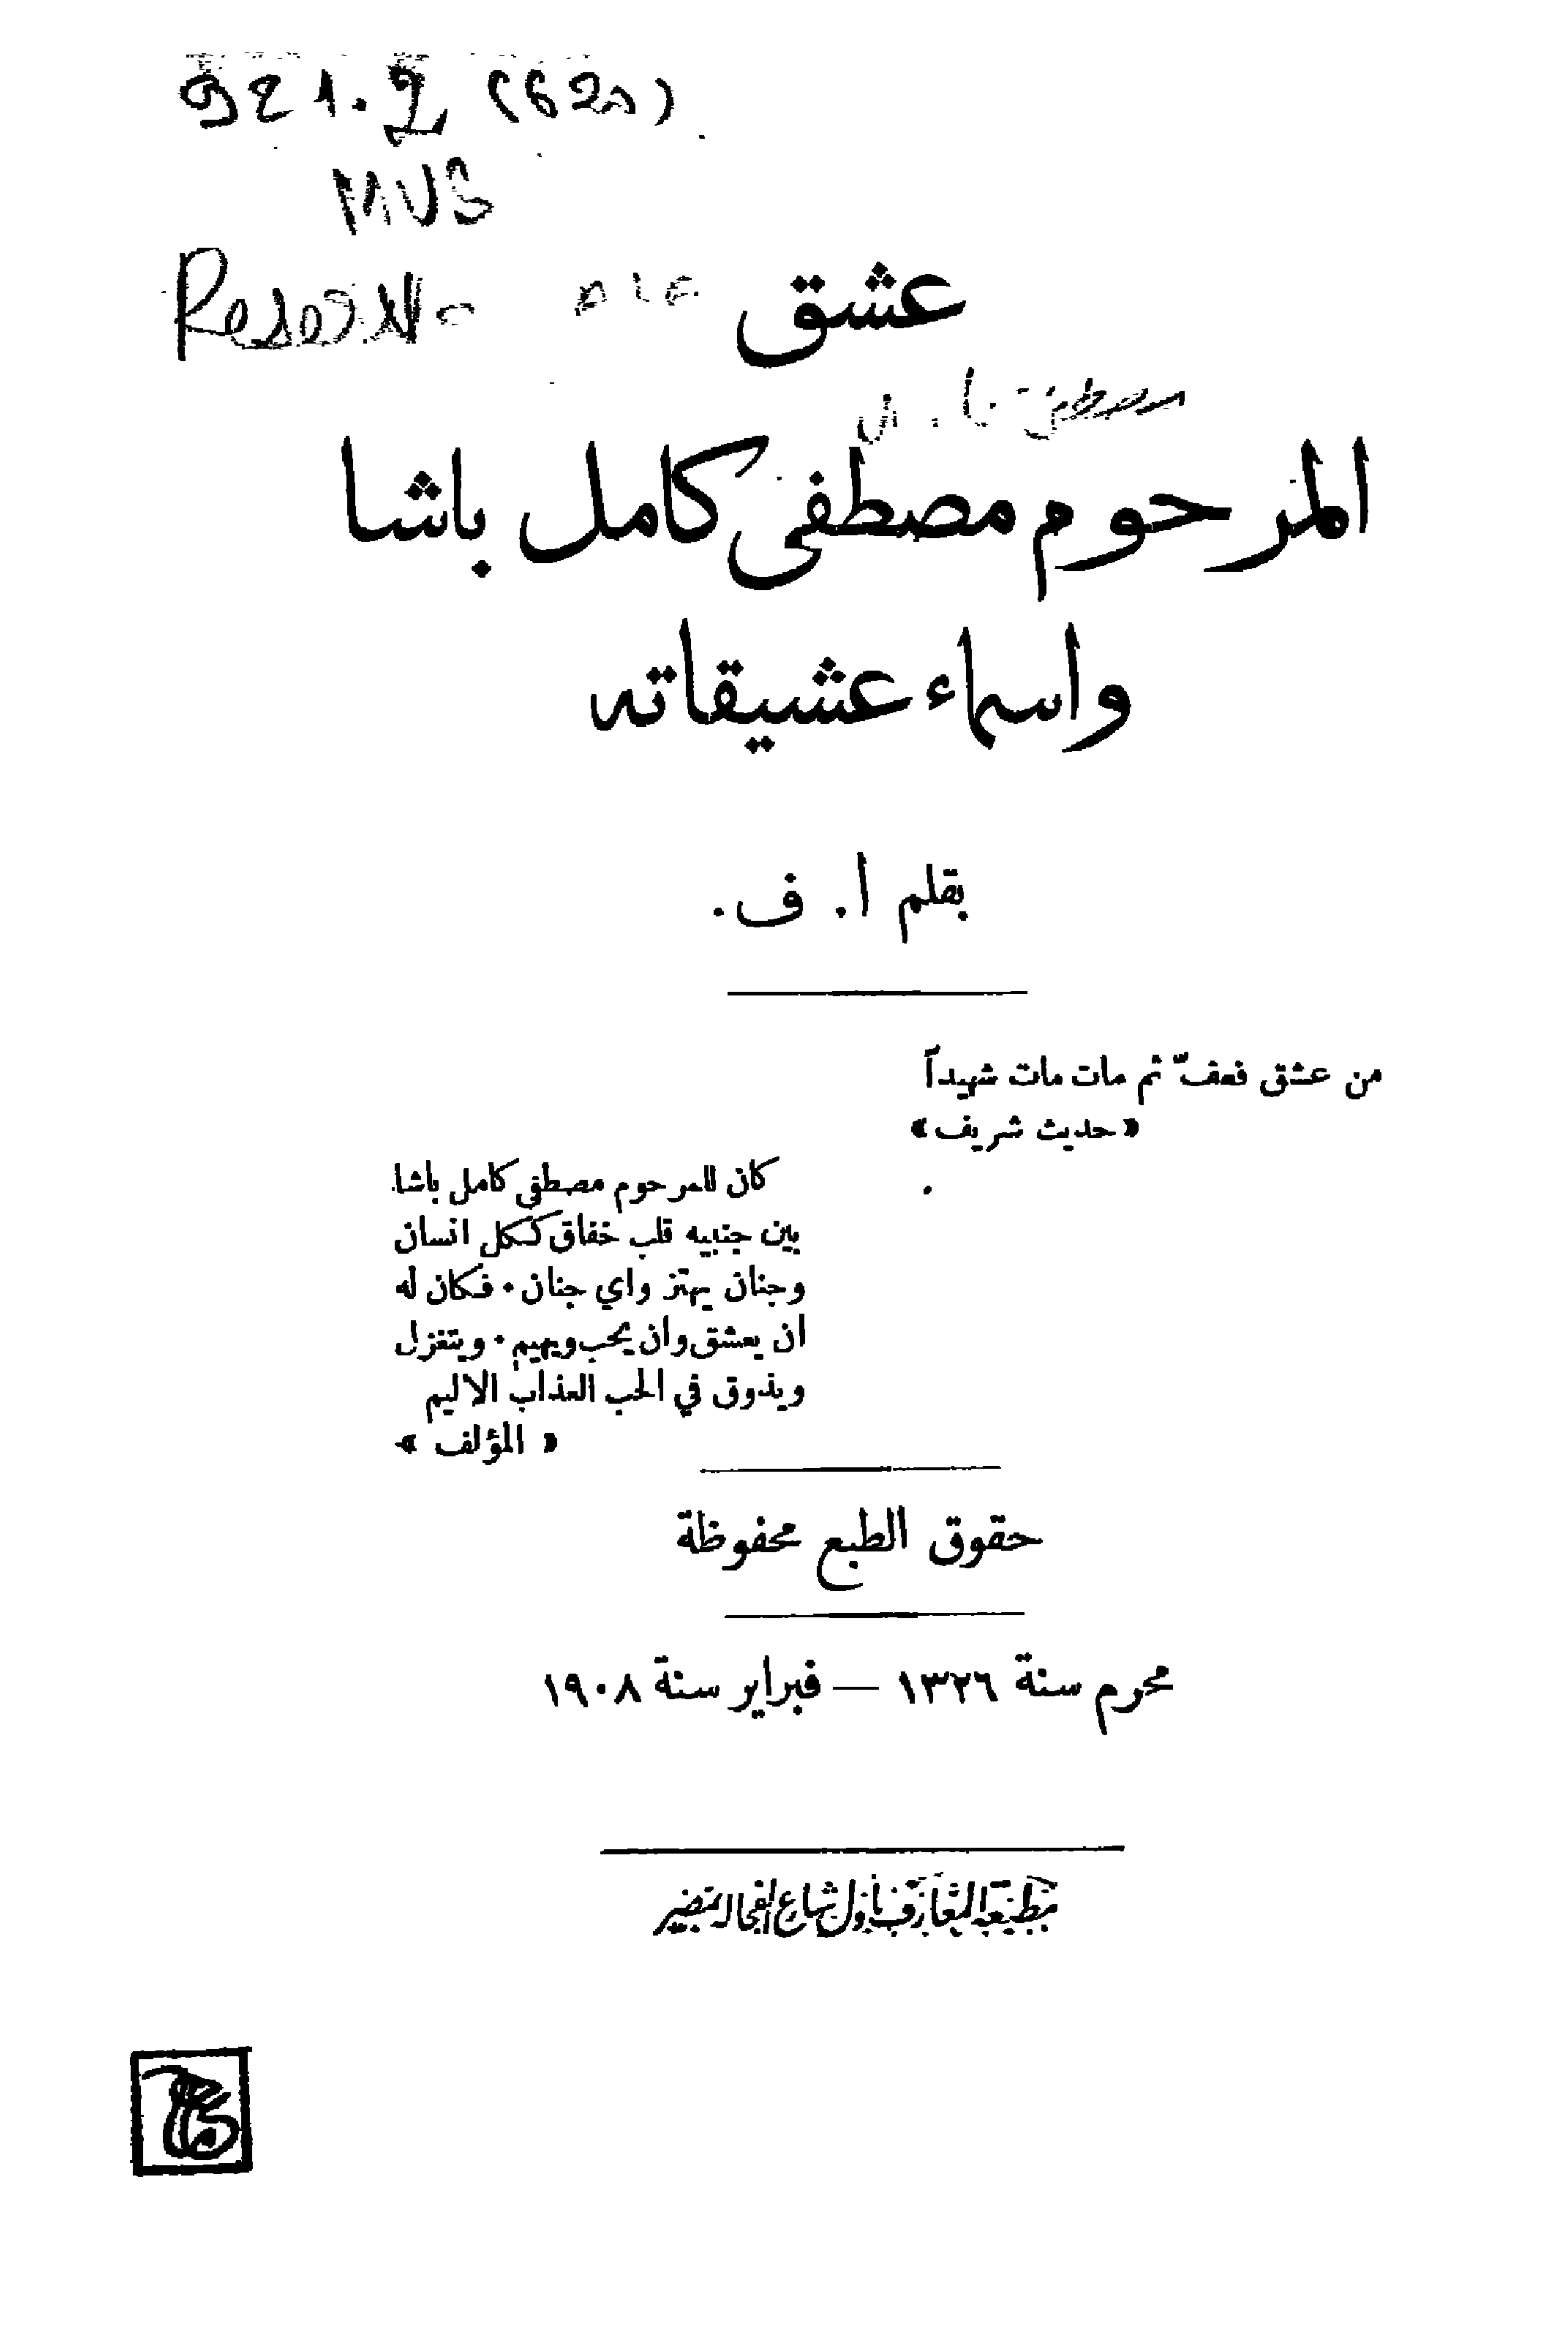 921.2 (620)
MUS
عشق
المرحوم مصطفى كامل باشا
واسماء عشيقاته
بقلم ا. ف.
من عشق فعفّ ثم مات مات شهيداً
« حديث شريف »
كان للمرحوم مصطفى كامل باشا
بين جنبيه قلب خفاق ككل انسان
وجنان يهتز واي جنان . فكان له
ان يعشق وان يحب ويهيم . ويتغزل
ويذوق في الحب العذاب الاليم
« المؤلف »
حقوق الطبع محفوظة
محرم سنة ١٣٢٦ — فبراير سنة ١٩٠٨
مطبعة المعارف باول شارع الفجالة بمصر